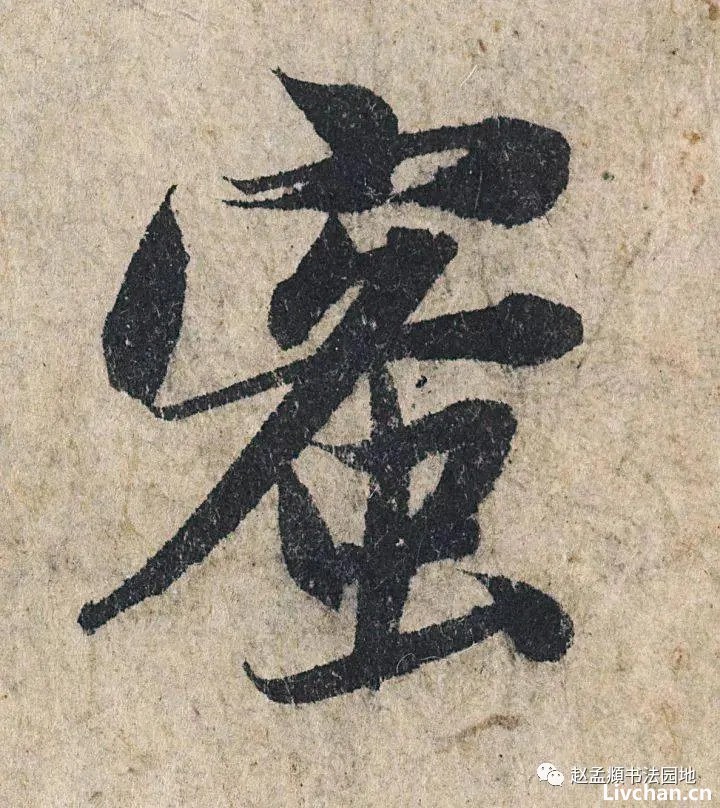 蜜
赵孟頫书法园地
Livchan.cn